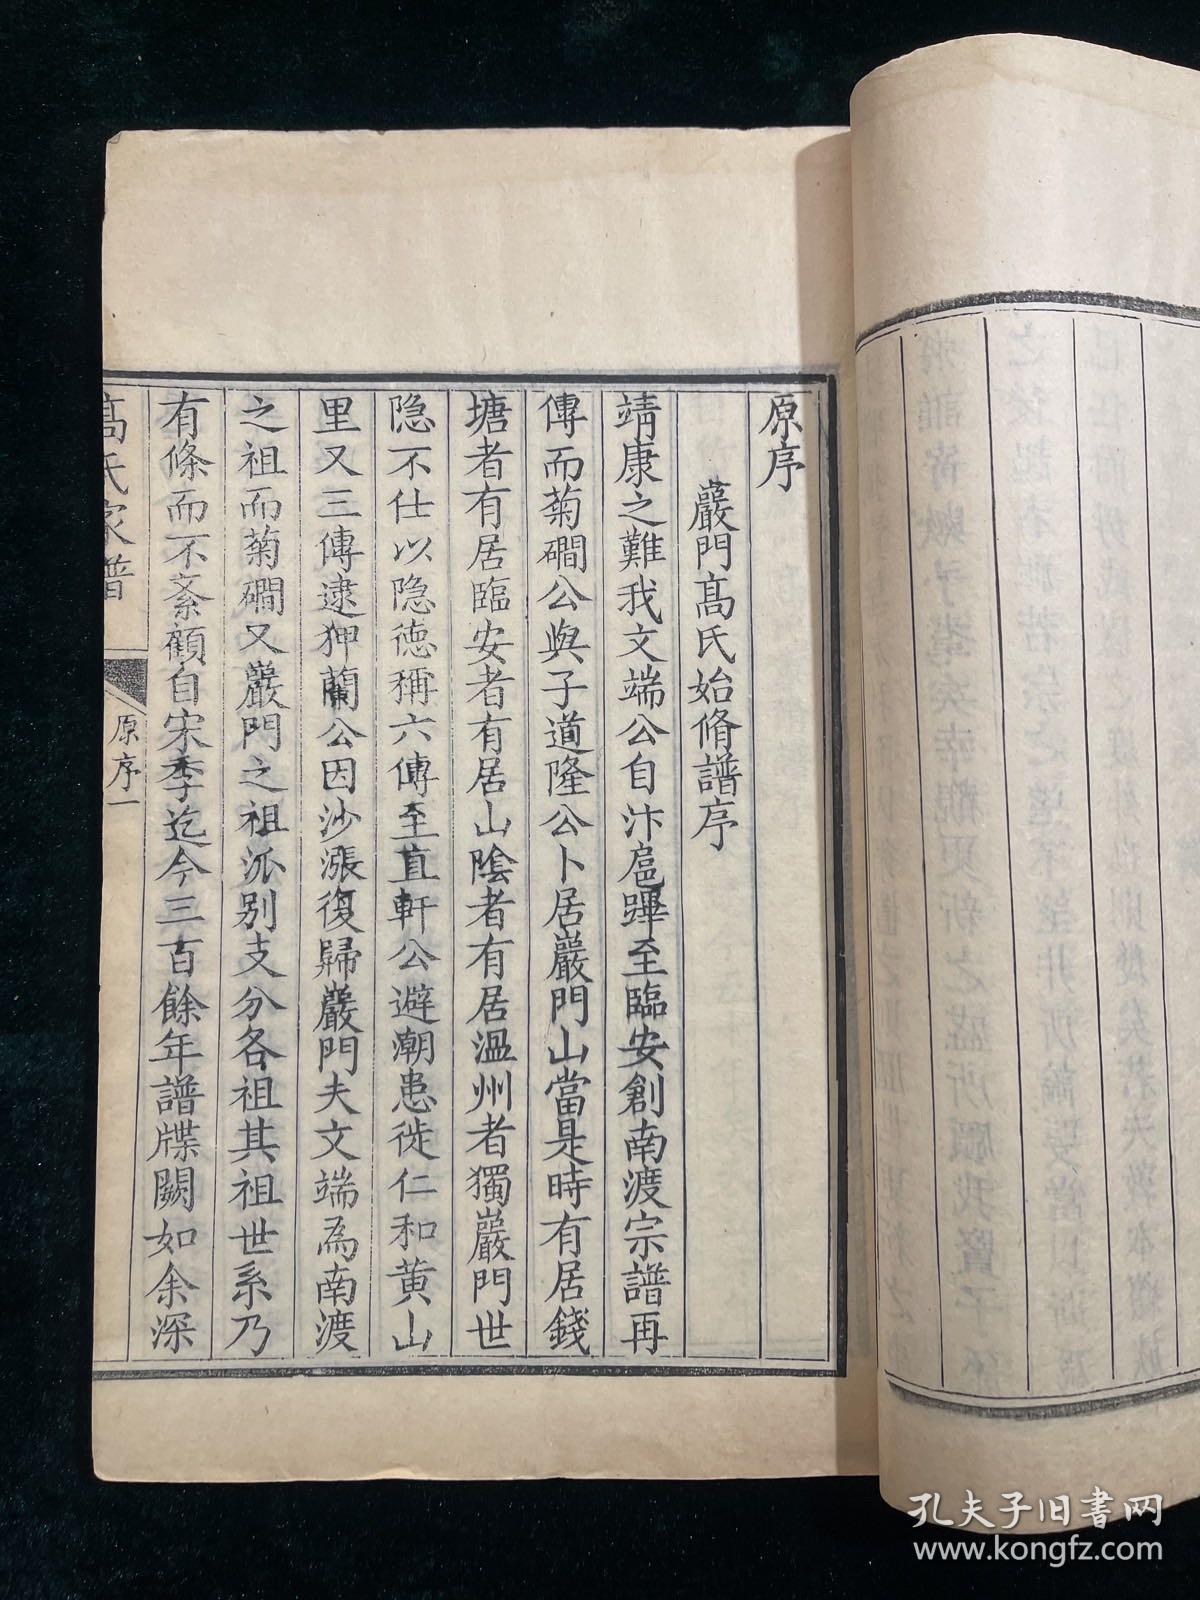 原序
巖門髙氏始脩譜序
靖康之難我文端公自汴扈蹕至臨安創南渡宗譜再
傳而菊磵公與子道隆公卜居巖門山當是時有居錢
塘者有居臨安者有居山陰者有居溫州者獨巖門世
隐不仕以隐徳稱六傳至直軒公避潮患徙仁和黃山
里又三傳逮狎蘭公因沙漲復歸巖門夫文端為南渡
之祖而菊磵又巖門之祖派别支分各祖其祖世系乃
有條而不紊顧自宋季迄今三百餘年譜牒闕如余深
髙氏家譜
原序一
孔夫子旧书网
www.kongfz.com